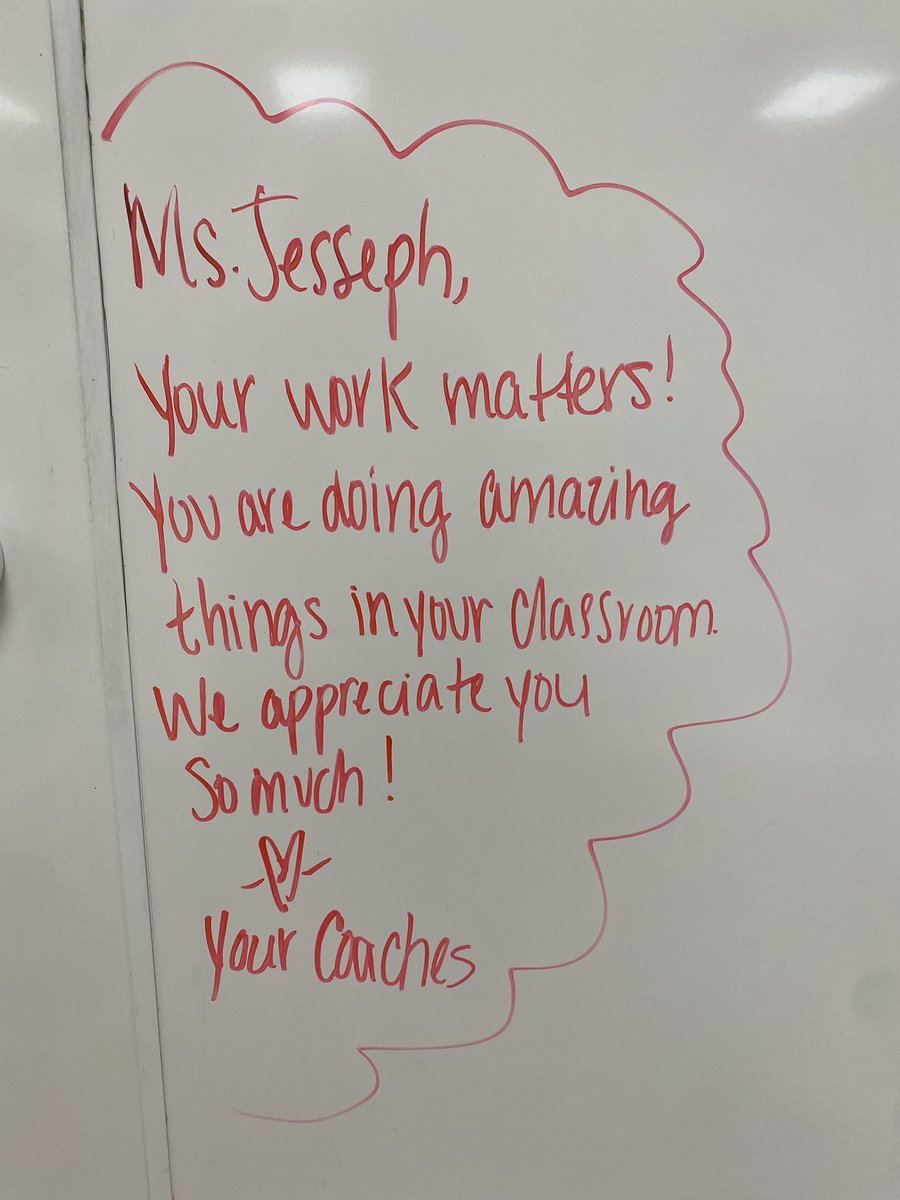 Ms. Jesseph,
Your work matters!
You are doing amazing
things in your classroom.
We appreciate you
So much!
Your Coaches